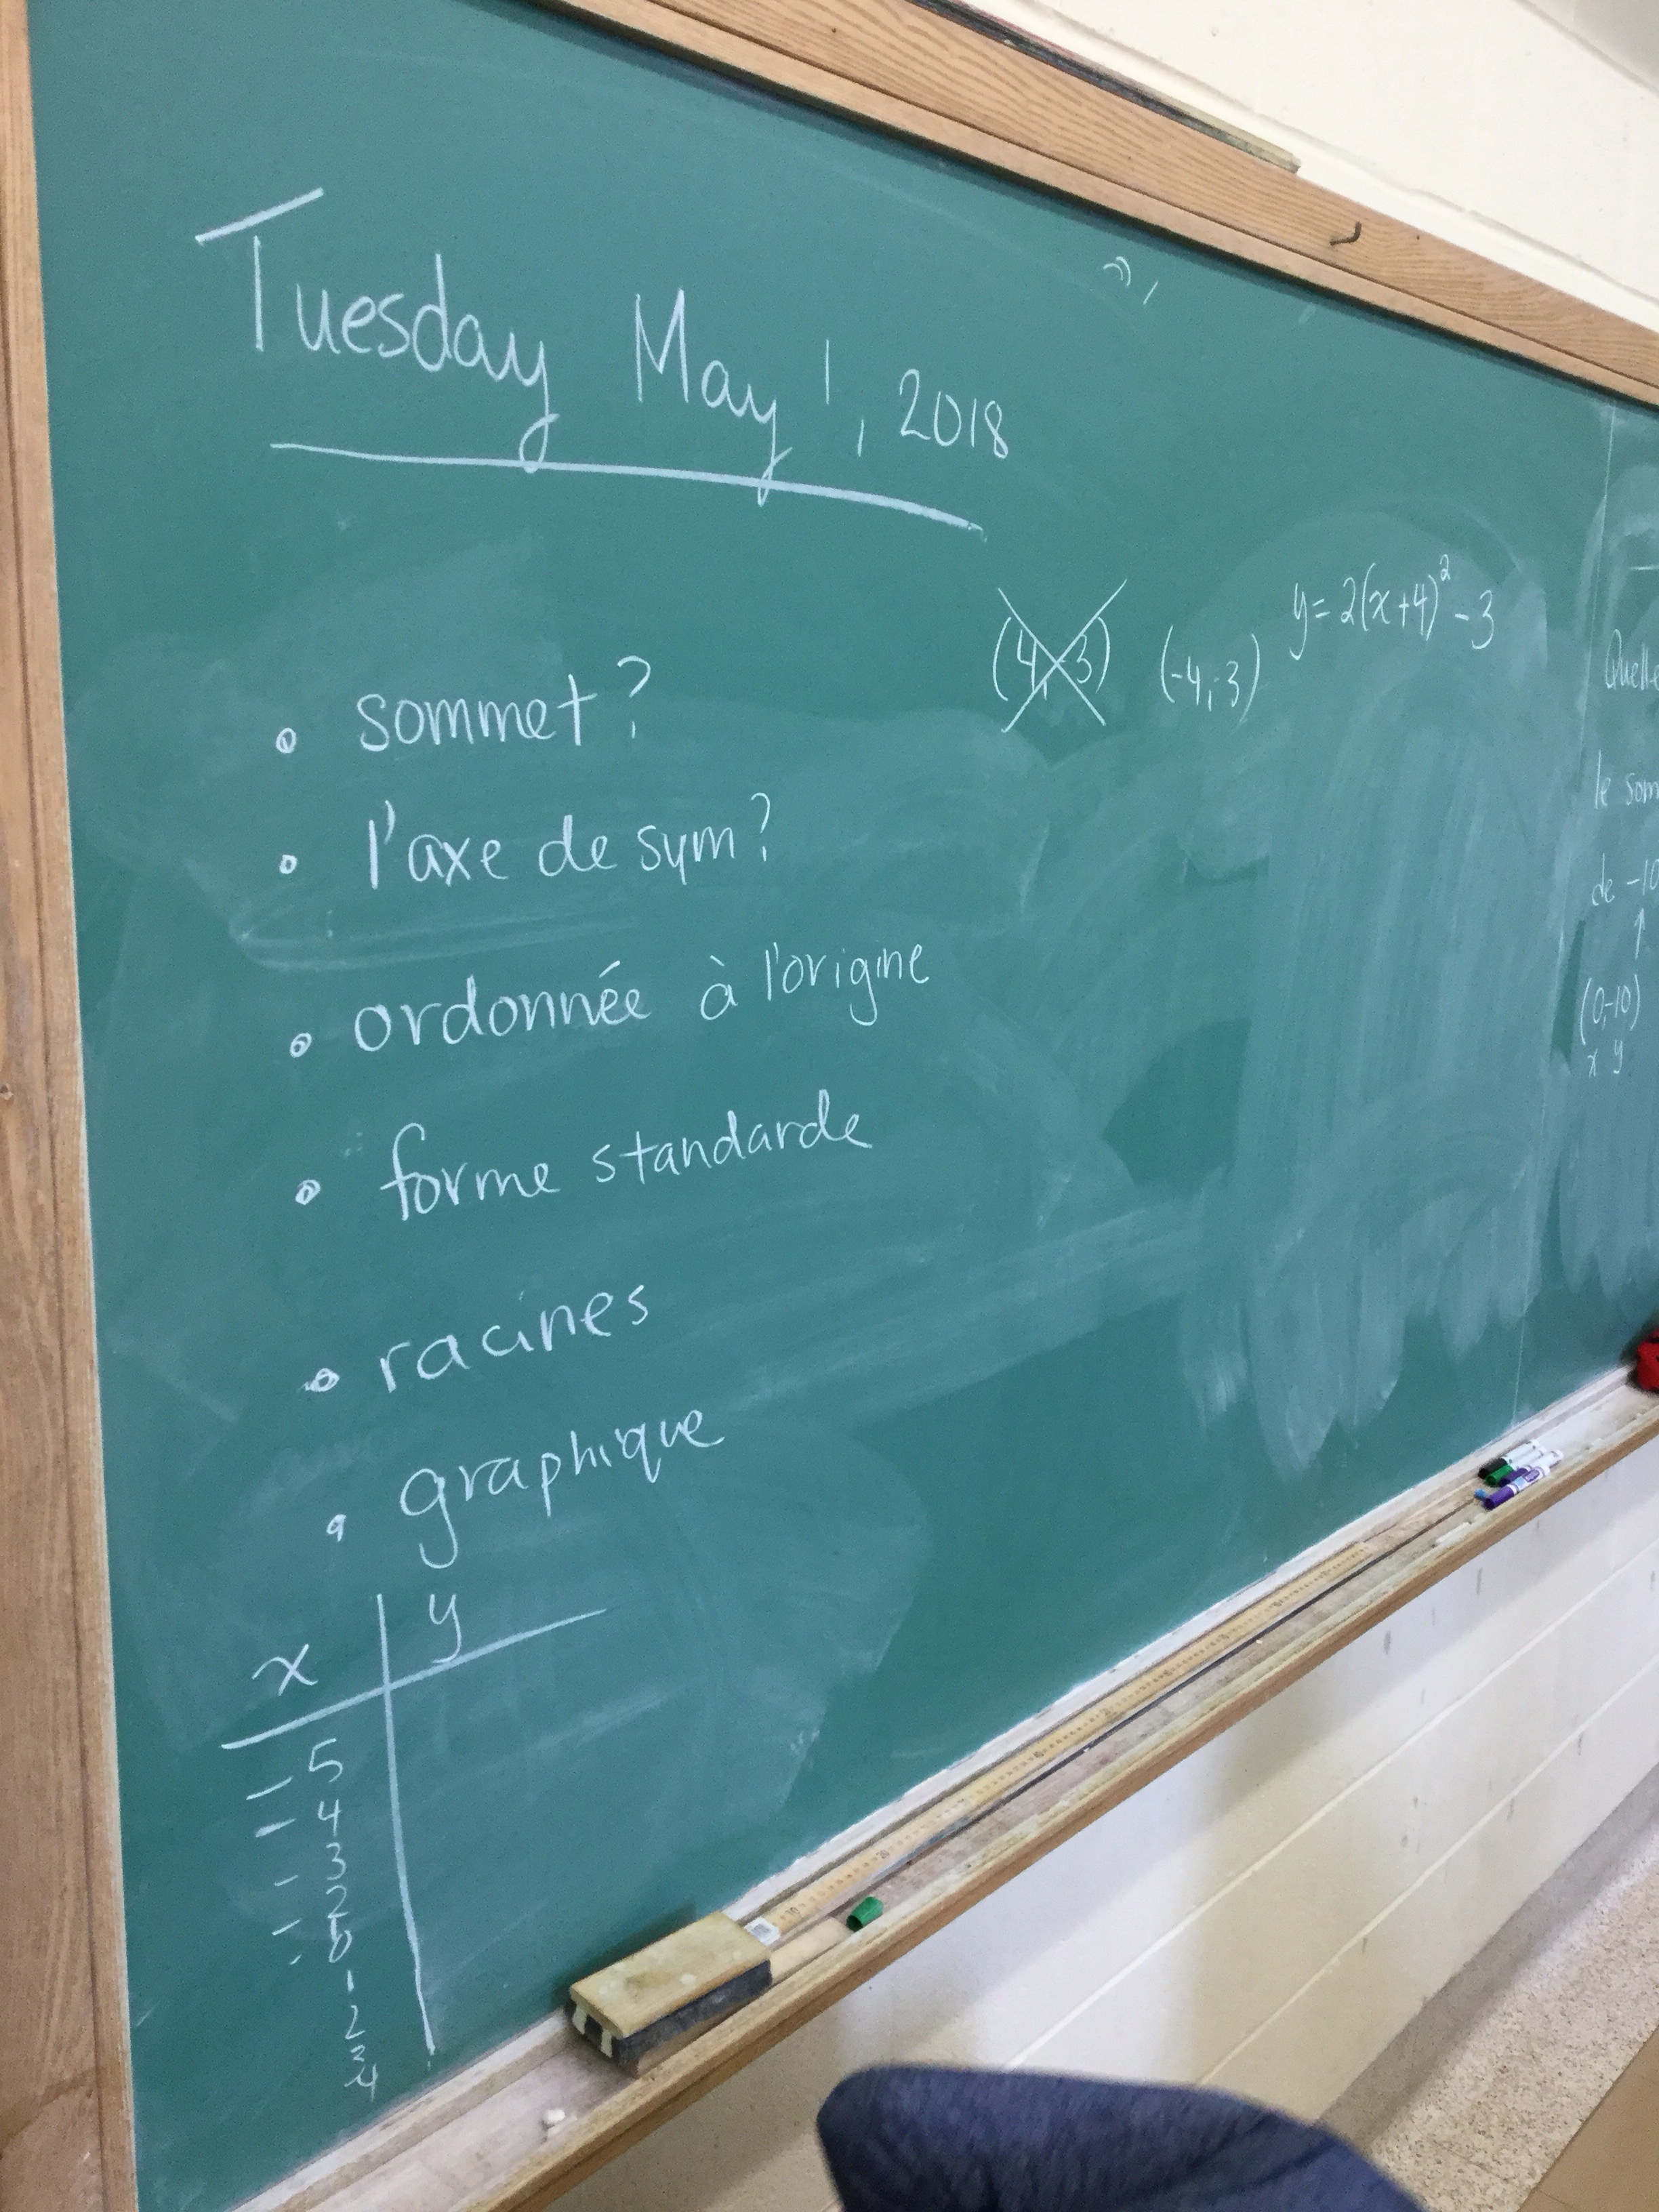 Tuesday May 1, 2018
y = 2(x+4)² - 3
(4,-3) (-4,-3)
• sommet?
• l'axe de sym?
• ordonnée à l'origine
• forme standarde
• racines
• graphique
x y
-5
-4
-3
-2
0
1
2
3
4
Quelle
le som
de -10
↑
(0,-10)
x y